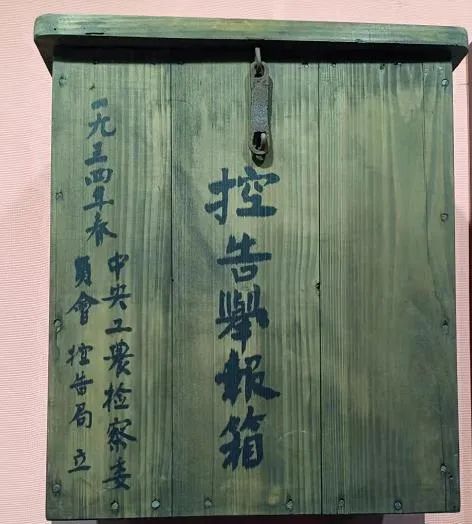 控告舉報箱
一九三四年春
中央工農检察委
員會 控告局 立